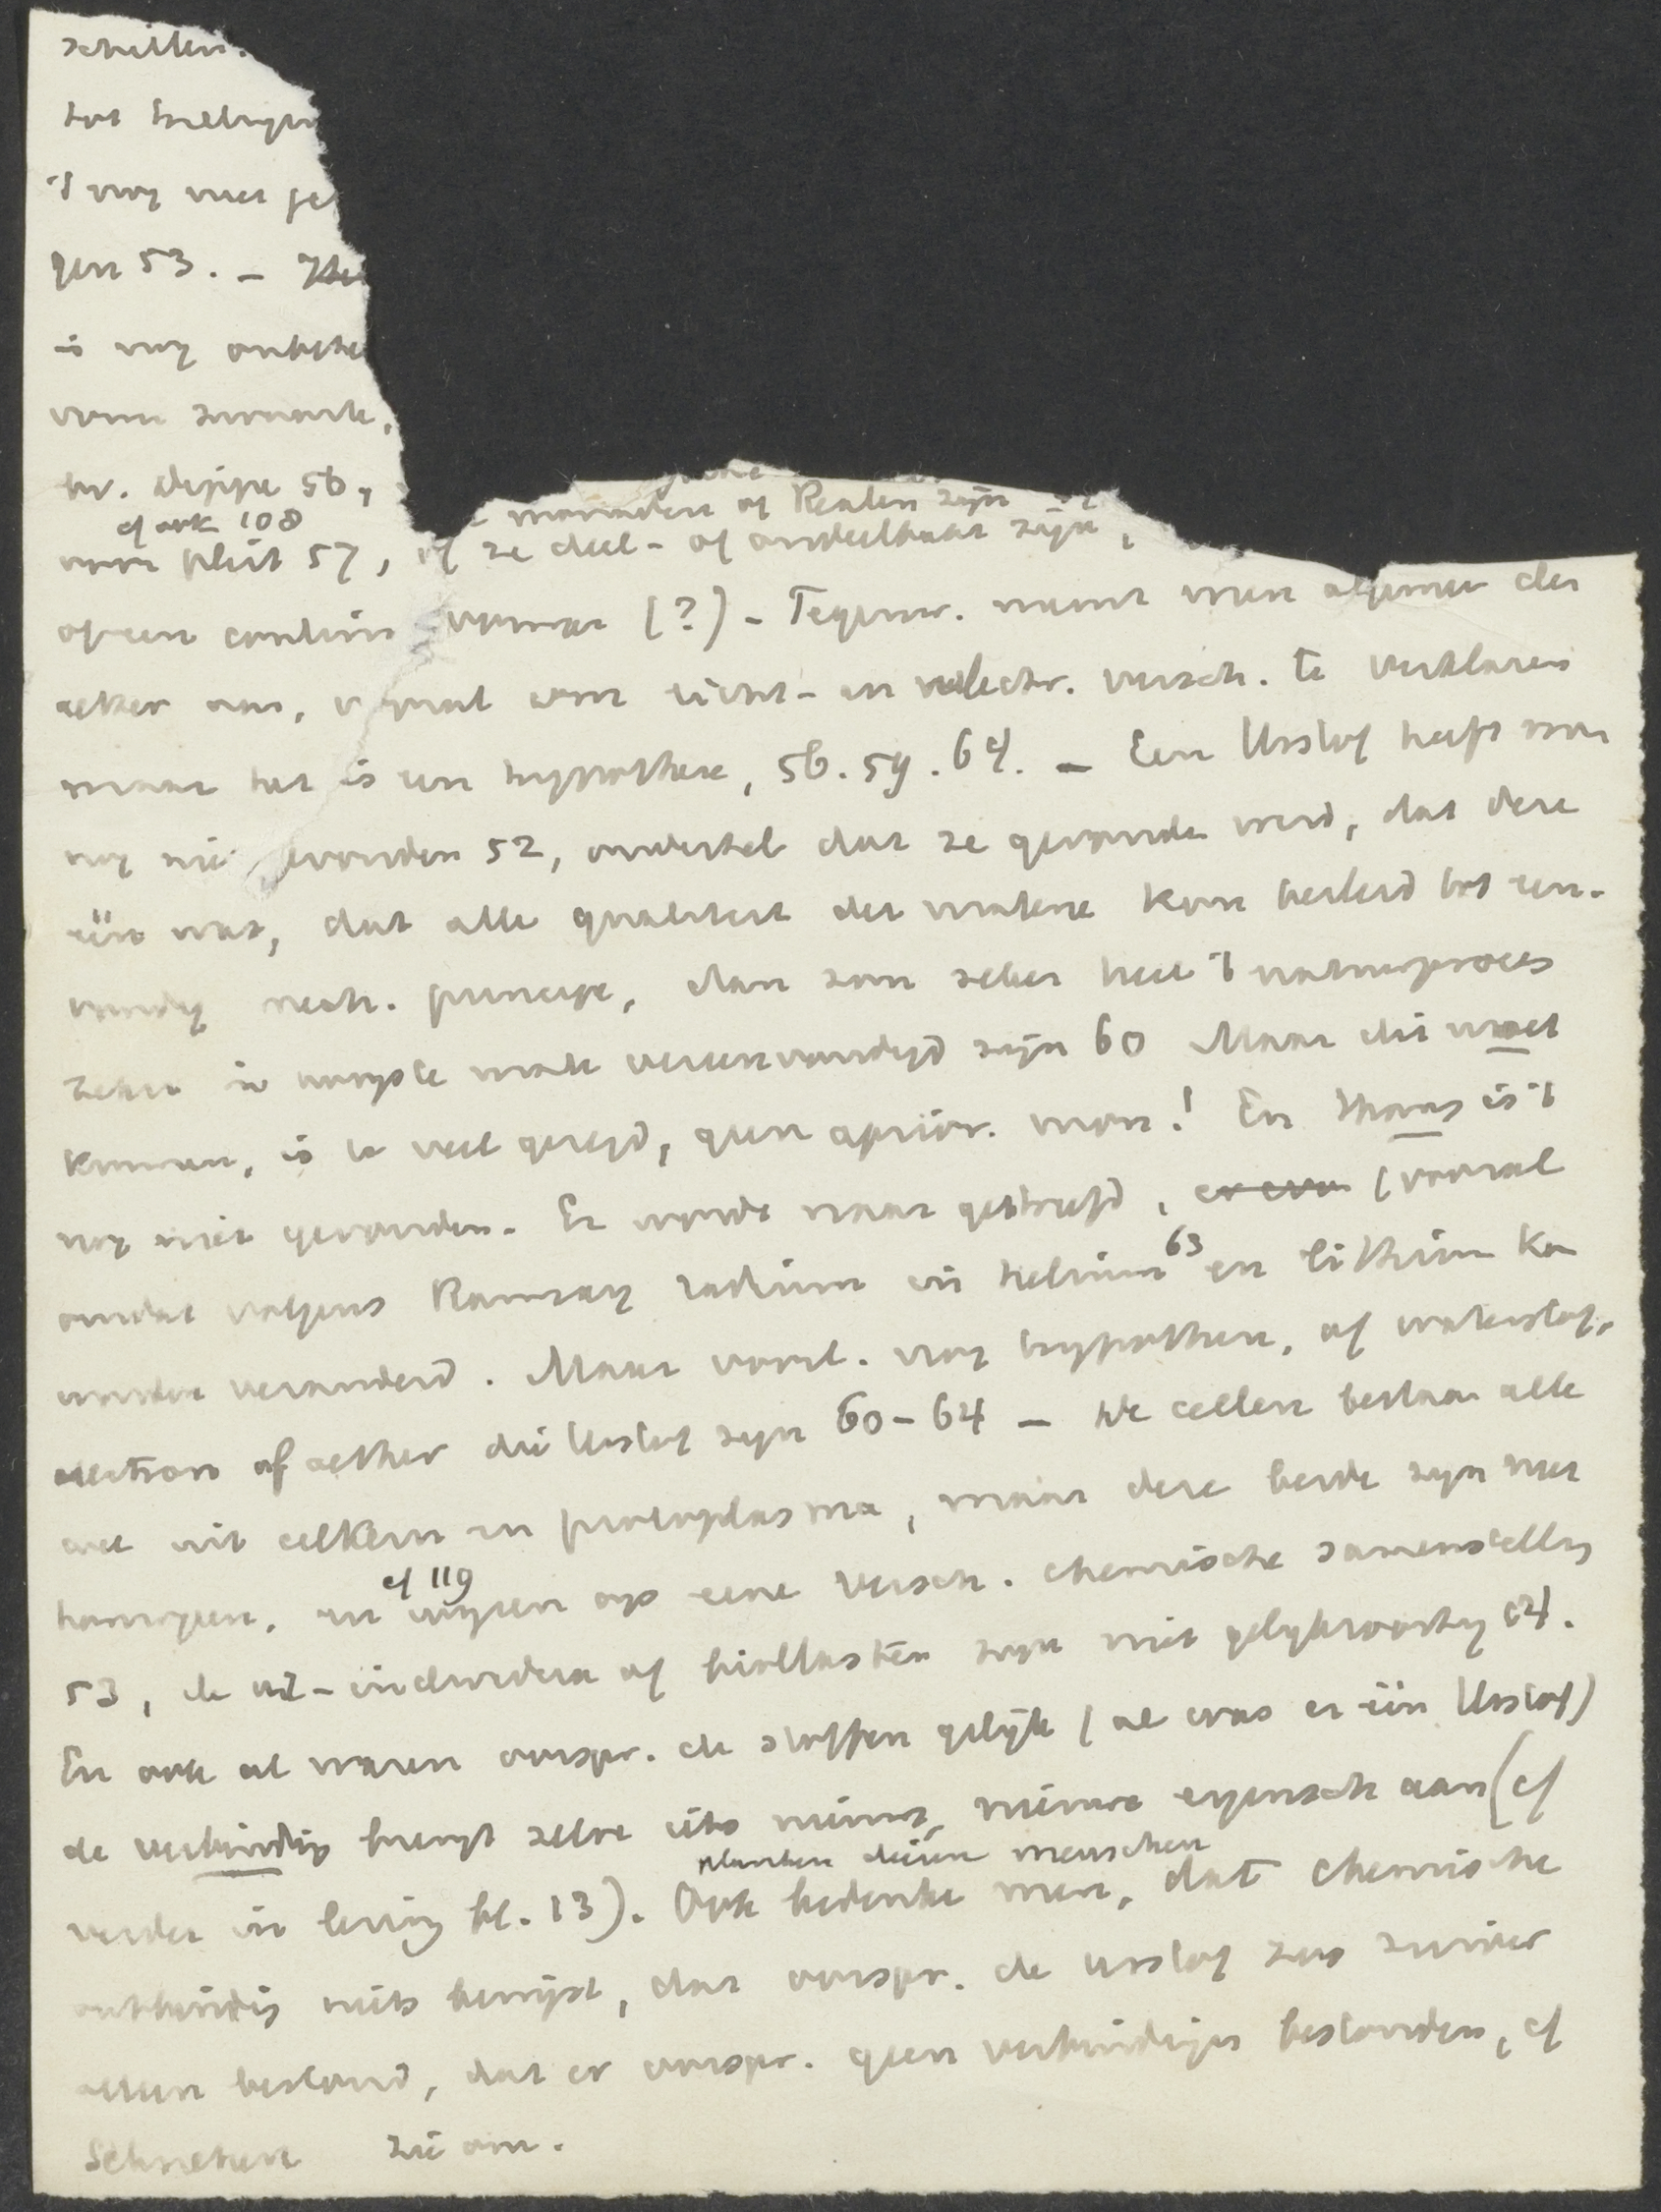 schillen.
tot trillingen
't nog niet ge
gen 53. –
is nog onbeke
voor zwaarte,
hv. dippe 56,
cf ook 108
monaden of Realen zijn
voor pluit 57, of ze deel- of ondeelbaar zijn,
op een contin vormen (?) – Tegenw. neemt men algemeen den
aether aan, vooral om licht- en electr. versch. te verklaren
maar het is een hypothese, 56. 59. 64. – Een Urstof heeft men
nog nie gevonden 52, ondersteld dat ze gevonden werd, dat deze
één was, dat alle qualiteit der materie kon herleid tot een-
voudig mech. principe, dan zou zeker heel 't natuurproces
zeker in hoogste mate vereenvoudigd zijn 60 Maar dit moet
kunnen, is te veel gezegd, geen aprior. mon! En thans is 't
nog niet gevonden. Er wordt naar gestreefd, (vooral
omdat volgens Ramsay radium in helium 63 en lithium kan
worden veranderd. Maar voorl. nog hypothese, of waterstof,
electron of aether die Urstof zijn 60–64 – De cellen bestaan alle
wel uit celkern en protoplasma, maar deze beide zijn niet
cf 119
homogeen, en wijzen op eene versch. chemische samenstelling
53, de cel-individuen of bioblasten zijn niet gelijksoortig 54.
En ook al waren oorspr. de stoffen gelijk (al was er één Urstof)
de verbinding brengt zelve iets nieuws, nieuwe eigensch aan (cf
planten dieren menschen
verder in leving bl. 13). Ook bedenke men, dat chemische
ontbinding niets bewijst, dat oorspr. de urstof zus zuiver
alleen bestond, dat er oorspr. geen verbindingen bestonden, cf
Schneken zie om.